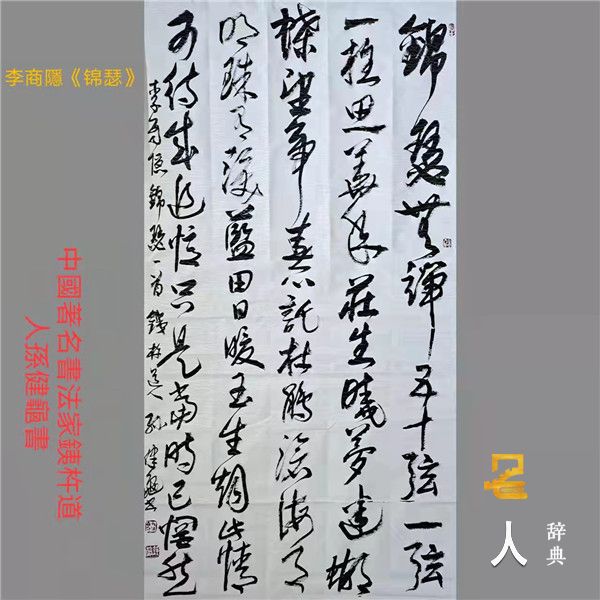 李商隱《锦瑟》
錦瑟無端五十弦一弦
一柱思華年莊生曉夢迷蝴
蝶望帝春心託杜鵑滄海月
明珠有淚藍田日暖玉生煙此情
可待成追憶只是當時已惘然
李商隱錦瑟一首鐵杵道人孫健龜書
中國著名書法家銕杵道
人孫健龜書
名
人
辞典